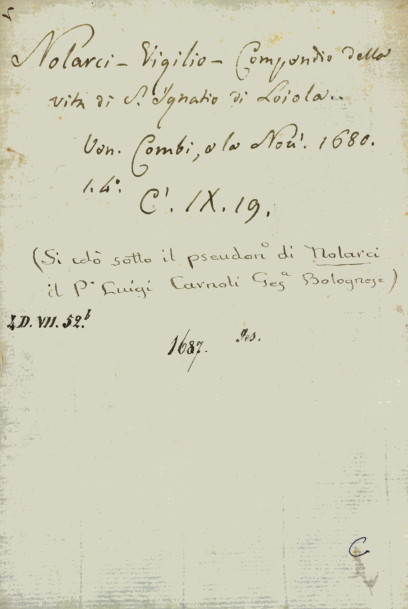 Nolarci - Vigilio - Compendio della
vita di S. Ignatio di Loiola..
Ven. Combi, e la Noù. 1680.
1. 4°.
C¹. IX. 19.
(Si celò sotto il pseudon° di Nolarci
il P. Luigi Carnoli Gesª Bolognese)
I.D. VII. 52.b
1687. Ges.
C